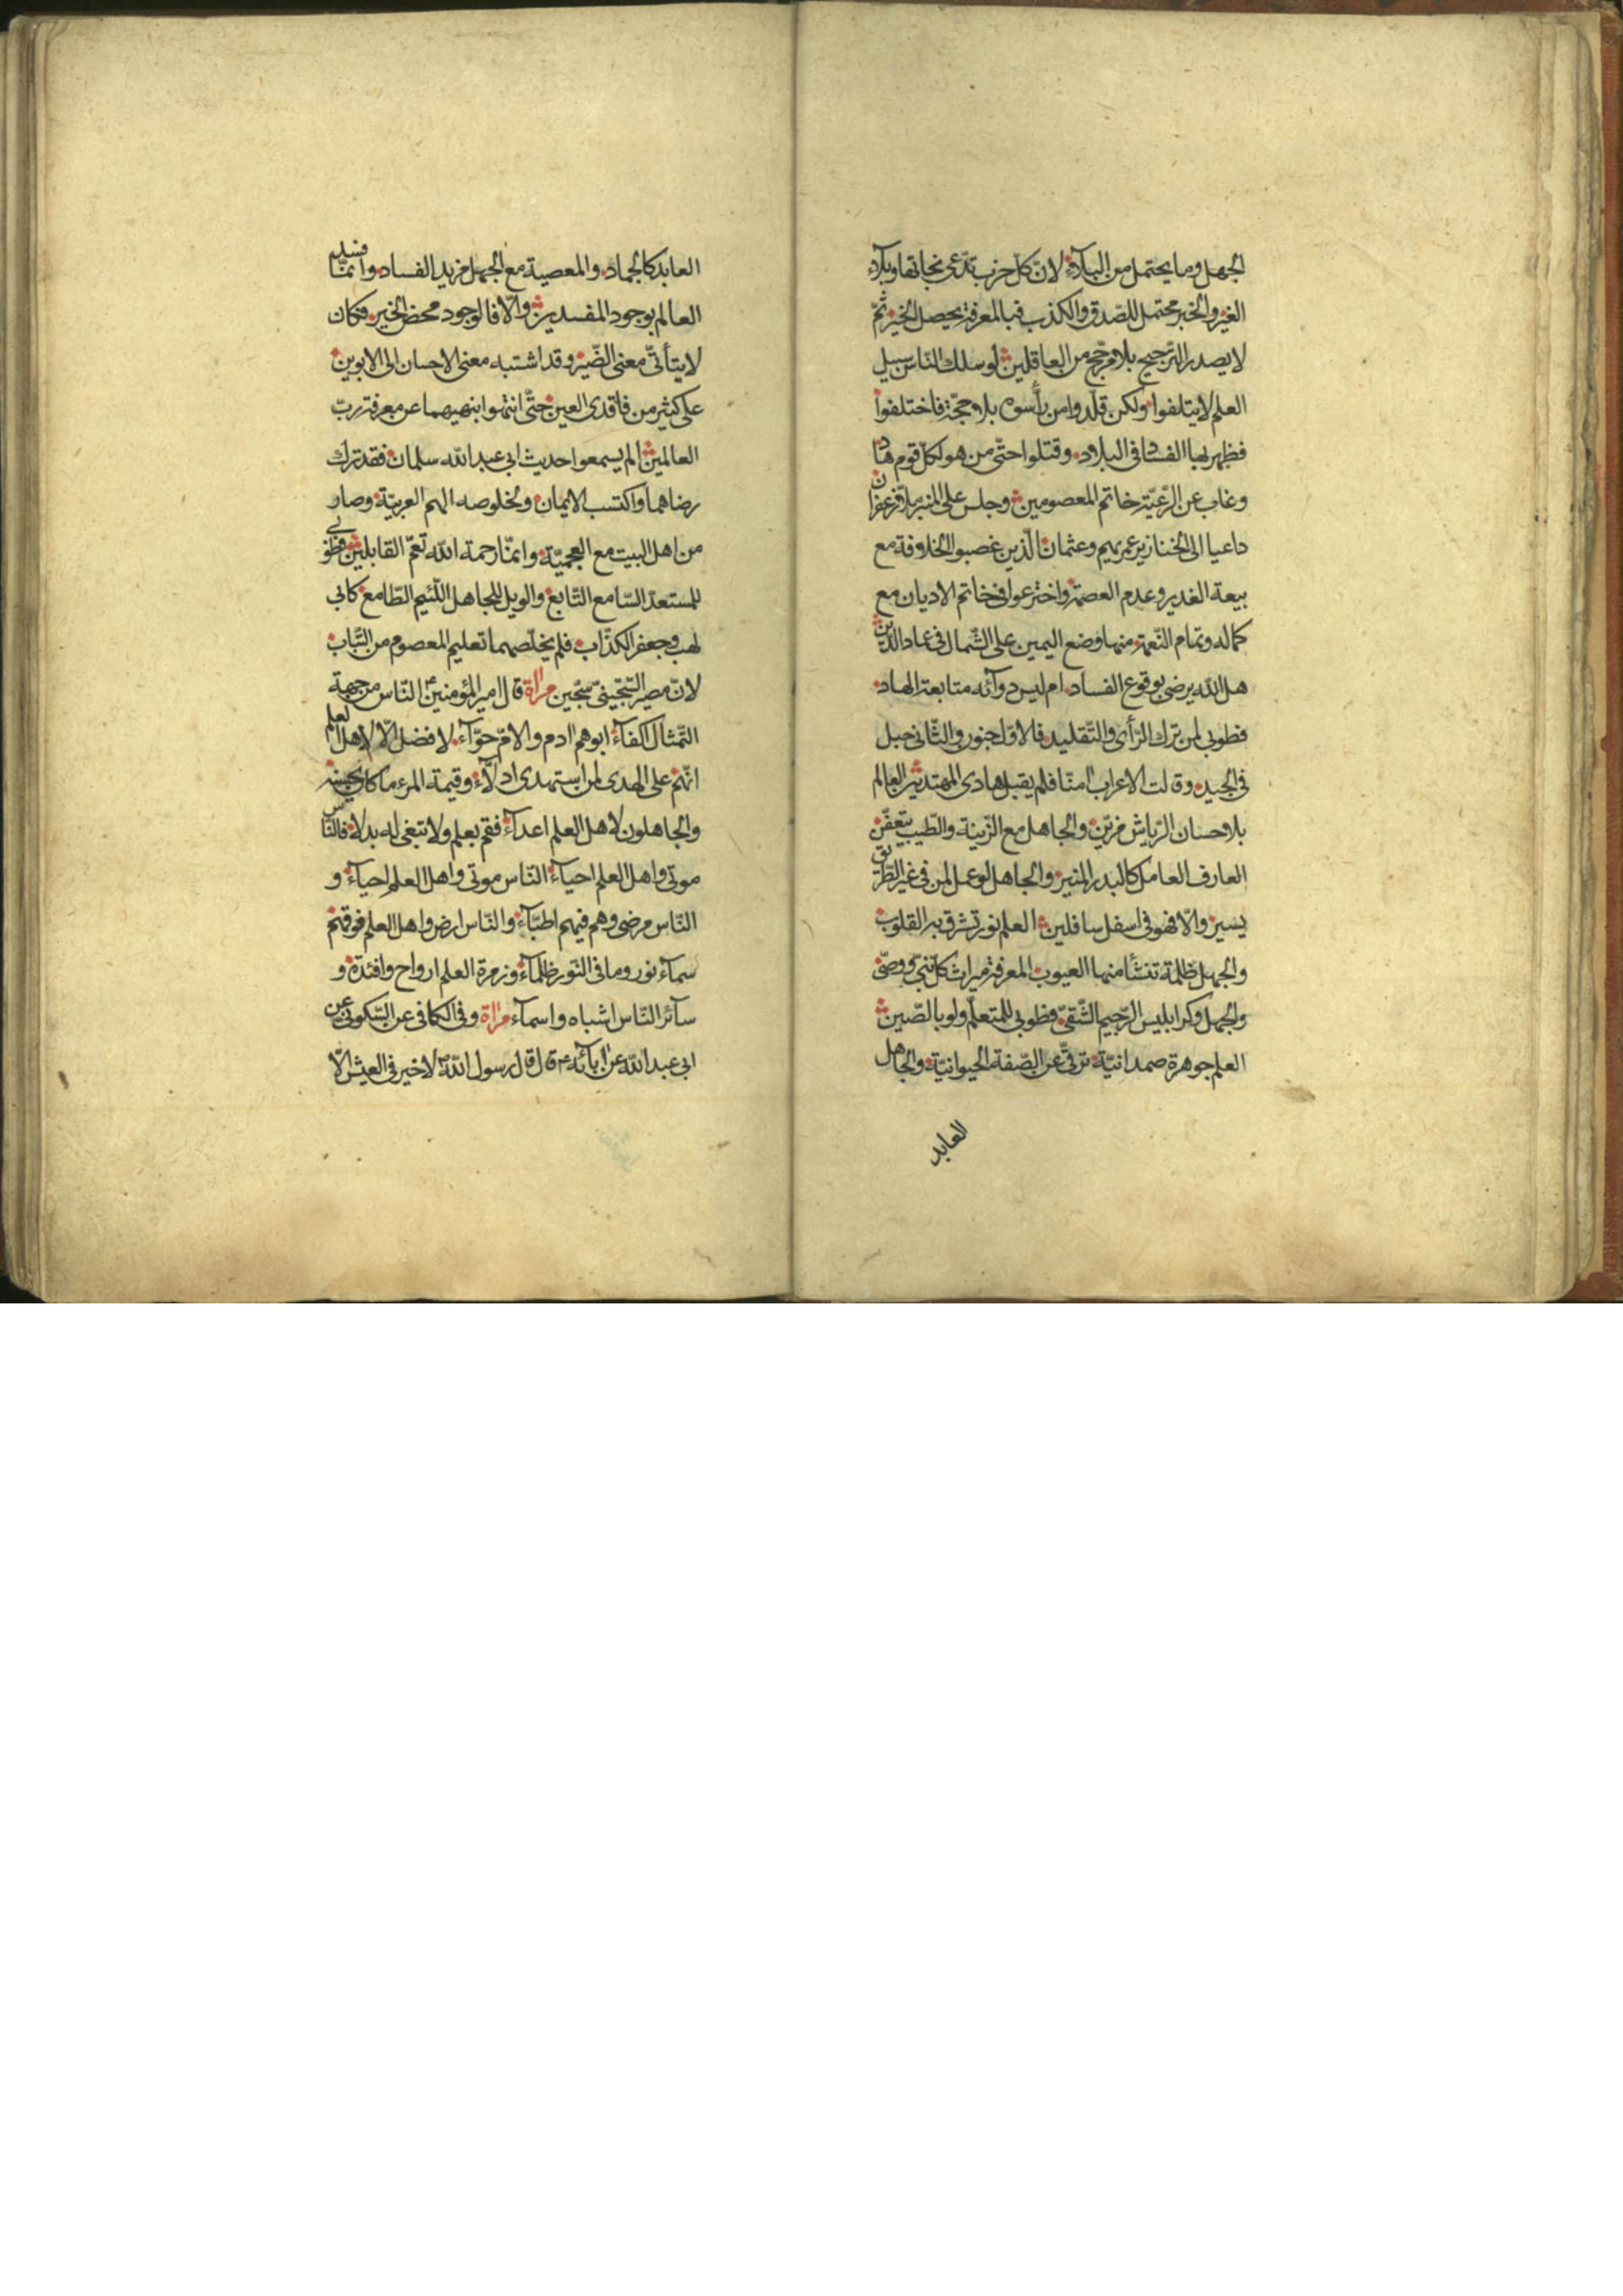 الجهل وما يحتمل من البلاء لانّ كلّ حزب تدّعى نجاتها وبلاء
الغير والخبر محتمل للصّدق والكذب فبالمعرفة يحصل الخير ثمّ
لا يصدر الترجيح بلا مرجّح من العاقلين لو سلك النّاس سبيل
العلم لايتلفوا ولكن قلّدوا من رأسوه بلا حجّة فاختلفوا
فظهر بها الفساد فى البلاد وقتلوا حتّى من هو لكلّ قوم هاد
وغاب عن الرّعيّة خاتم المعصومين وجلس على المنبر ملّا زعفران
داعيا الى الخنازير عمريهم وعثمان الّذين غصبوا الخلافة مع
بيعة الغدير وعدم العصمة واخترعوا فى خاتم الاديان مع
كماله وتمام النّعمة منها وضع اليمين على الشّمال فى عماد الدّين
هل الله يرضى بوقوع الفساد ام ليس دوآئه متابعة الهاد
فطوبى لمن ترك الرّأى والتّقليد فالاوّل جنون والثّانى حبل
فى الجيد وقالت الاعراب امنّا فلم يقبل هادى المهتدين العالم
بلا حسان الرّياش مزيّن والجاهل مع الزّينة والطّيب يتعفّن
العارف العامل كالبدر المنير والجاهل لو عمل لمن فى غير الطّريق
يسير والّا فهو فى اسفل سافلين العلم نور تشرق به القلوب
والجهل ظلمة تنشأ منها العيوب المعرفة ميراث كلّ نبىّ ووصىّ
والجهل وكر ابليس الرّجيم الشّقىّ فطوبى للمتعلّم ولو بالصّين
العلم جوهرة صمدانيّة ترقّى عن الصّفة الحيوانيّة والجاهل
العابد
العابد كالجماد والمعصية مع الجهل مزيد الفساد وانّما فسد
العالم بوجود المفسدين والّا فالوجود محض الخير فكان
لا يتأتّى معنى الضّير وقد اشتبه معنى الاحسان الى الابوين
على كثير من فاقدى العين حتّى انتهوا بنهيهما عن معرفة ربّ
العالمين الم يسمعوا حديث ابى عبد الله سلمان فقد ترك
رضاهما واكتسب الايمان ولخلوصه الهم العربيّة وصار
من اهل البيت مع العجميّة وانّما رحمة الله تعمّ القابلين فطوبى
للمستعدّ السّامع التّابع والويل للجاهل اللّئيم الطّامع كابى
لهب وجعفر الكذّاب فلم يخلّصهما تعليم المعصوم من التّباب
لانّ مصير السّجّينىّ سجّين مرآة قال امير المؤمنين ع النّاس من جهة
التّمثال اكفآء ابوهم ادم والامّ حوّآء لا فضل الّا لاهل العلم
انّهم على الهدى لمن استهدى ادلّآء وقيمة المرء ما كان يحسنه
والجاهلون لاهل العلم اعدآء فقم بعلم ولا تبغى له بدلا فالنّاس
موتى واهل العلم احيآء النّاس موتى واهل العلم احيآء و
النّاس مرضى وهم فيهم اطبّآء والنّاس ارض واهل العلم فوقهم
سمآء نور وما فى النّور ظلمآء وزمرة العلم ارواح وافئدة و
سآئر النّاس اشباه واسمآء مرآة وفى الكافى عن السّكونى عن
ابى عبد الله عن ابآئه ع قال قال رسول الله ص لا خير فى العيش الّا